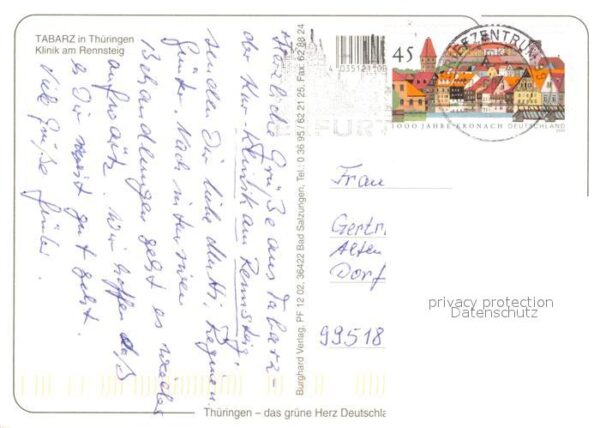 TABARZ in Thüringen
Klinik am Rennsteig
Herzliche Grüße aus Tabarz -
der Kur-Klinik am Rennsteig,
senden Dir liebe Mutti,
Günter. Nach intensiven
Behandlungen geht es wieder
aufwärts. Wir hoffen daß
es Dir meist gut geht.
Viele Grüße
Günter.
Burghard Verlag, PF 12 02, 36422 Bad Salzungen, Tel.: 0 36 95 / 62 21 25, Fax: 62 88 24
4 035121
45
ZENTRUM
ERFURT
1000 JAHRE KRONACH DEUTSCHLAND
Frau
Gertr
Alten
Dorf
99518
privacy protection
Datenschutz
Thüringen – das grüne Herz Deutschla